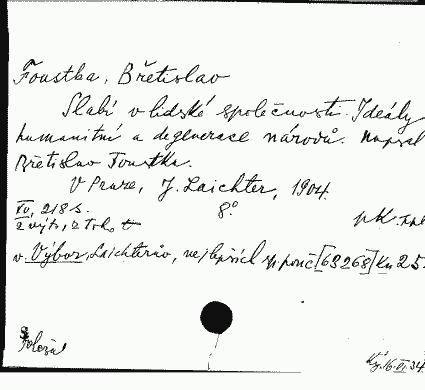 Foustka, Břetislav
Slabí v lidské společnosti. Ideály
humanitní a degenerace národů. Napsal
Břetislav Foustka.
V Praze, J. Laichter, 1904.
IV, 218 s. 8°
v. Výbor, Laichterův, nejlepších sp. pouč [63268] Kn 25.
16. VI. 34